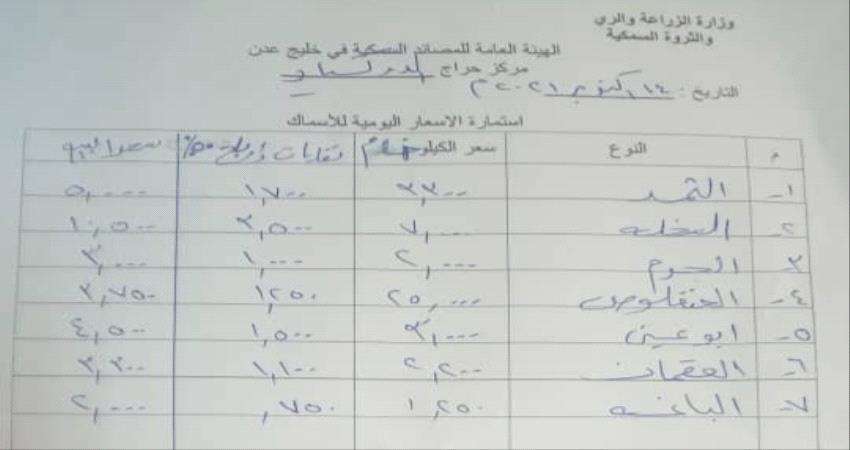 وزارة الزراعة والري
والثروة السمكية
الهيئة العامة للمصائد السمكية في خليج عدن
مركز حراج
التاريخ : ١٤ اكتوبر ٢٠٢١م
استمارة الاسعار اليومية للأسماك
م النوع سعر الكيلو خام نفقات وارباح ٥٠% سعر البيع
١- الثمد ٣,٣٠٠ ١,٧٠٠ ٥,٠٠٠
٢- السخله ٧,٠٠٠ ٣,٥٠٠ ١٠,٥٠٠
٣ ٢,٠٠٠ ١,٠٠٠ ٣,٠٠٠
٤- ٢٥,٠٠٠ ١,٢٥٠ ٣,٧٥٠
٥- ابو عين ٣,٠٠٠ ١,٥٠٠ ٤,٥٠٠
٦- العقمان ٢,٢٠٠ ١,١٠٠ ٣,٣٠٠
٧- الباغه ١,٢٥٠ ,٧٥٠ ٢,٠٠٠